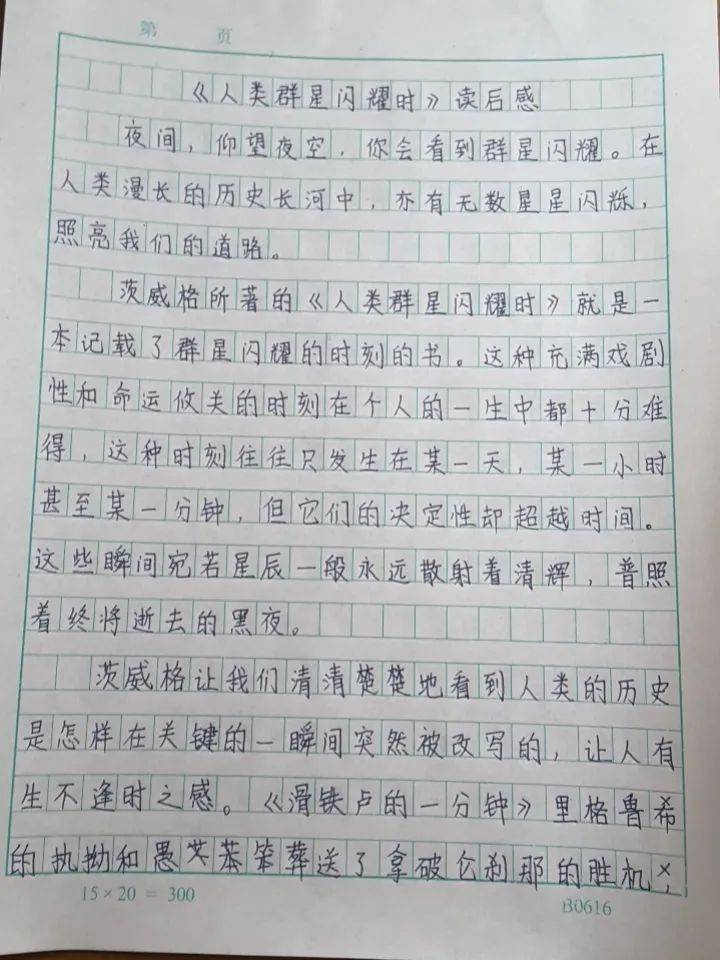 第 页
《人类群星闪耀时》读后感
夜间，仰望夜空，你会看到群星闪耀。在
人类漫长的历史长河中，亦有无数星星闪烁，
照亮我们的道路。
茨威格所著的《人类群星闪耀时》就是一
本记载了群星闪耀的时刻的书。这种充满戏剧
性和命运攸关的时刻在个人的一生中都十分难
得，这种时刻往往只发生在某一天，某一小时
甚至某一分钟，但它们的决定性却超越时间。
这些瞬间宛若星辰一般永远散射着清辉，普照
着终将逝去的黑夜。
茨威格让我们清清楚楚地看到人类的历史
是怎样在关键的一瞬间突然被改写的，让人有
生不逢时之感。《滑铁卢的一分钟》里格鲁希
的执拗和愚笨葬送了拿破仑刹那的胜机，
15×20=300
B0616